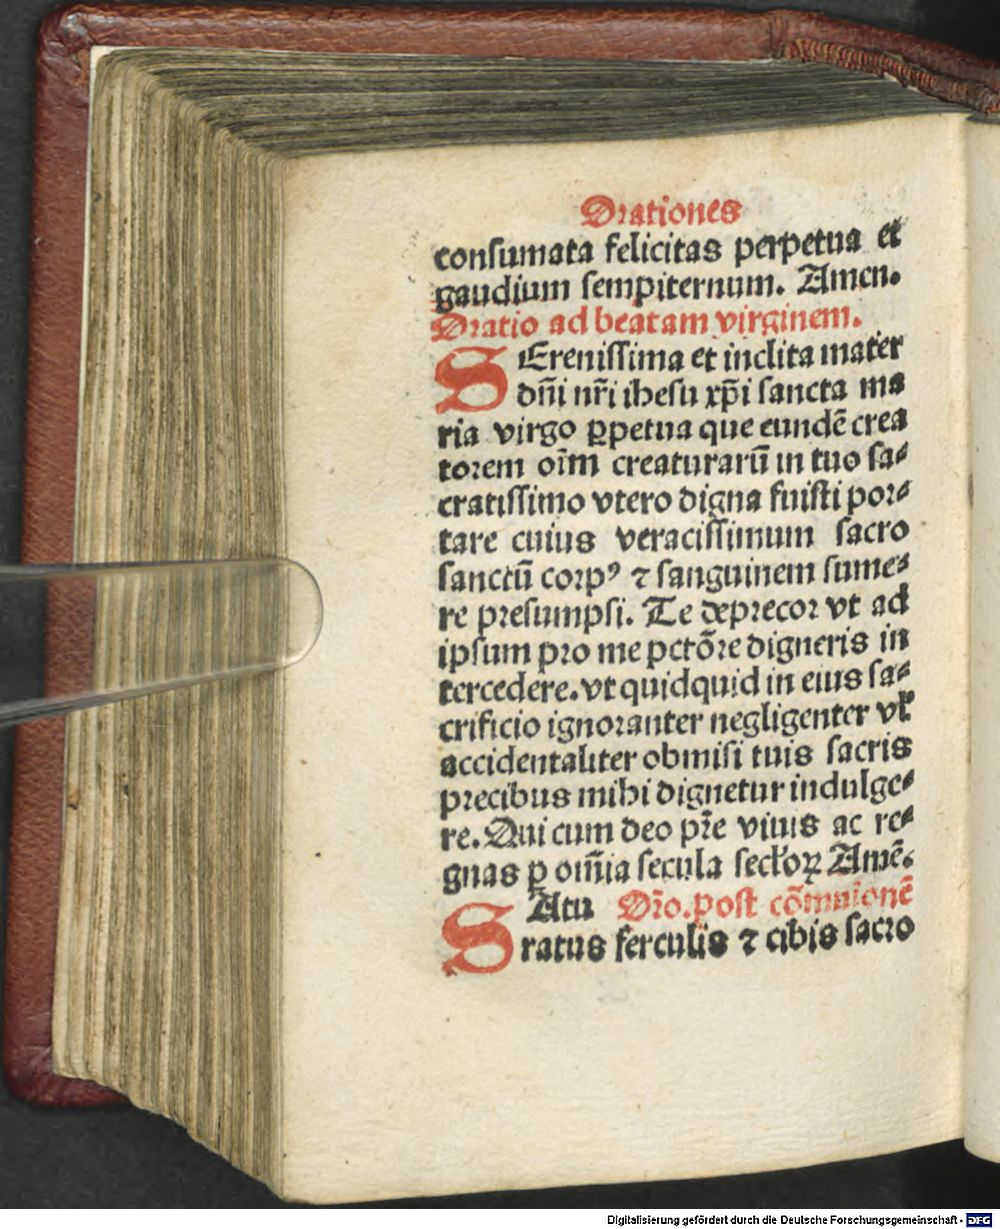 Orationes
consumata felicitas perpetua et
gaudium sempiternum. Amen.
Oratio ad beatam virginem.
SErenissima et inclita mater
dñi nr̄i ihesu xp̄i sancta ma
ria virgo ꝑpetua que eundē crea
torem oīm creaturarū in tuo sa⸗
cratissimo vtero digna fuisti por⸗
tare cuius veracissimum sacro
sanctū corpꝰ ⁊ sanguinem sume⸗
re presumpsi. Te deprecor vt ad
ipsum pro me pctōre digneris in
tercedere. vt quidquid in eius sa⸗
crificio ignoranter negligenter vł
accidentaliter obmisi tuis sacris
precibus mihi dignetur indulge⸗
re. Qui cum deo pr̄e viuis ac re⸗
gnas ꝑ om̄ia secula secłoꝝ Amē.
SAtu Or̄o. post cōmunionē
ratus ferculis ⁊ cibis sacro
Digitalisierung gefördert durch die Deutsche Forschungsgemeinschaft - DFG